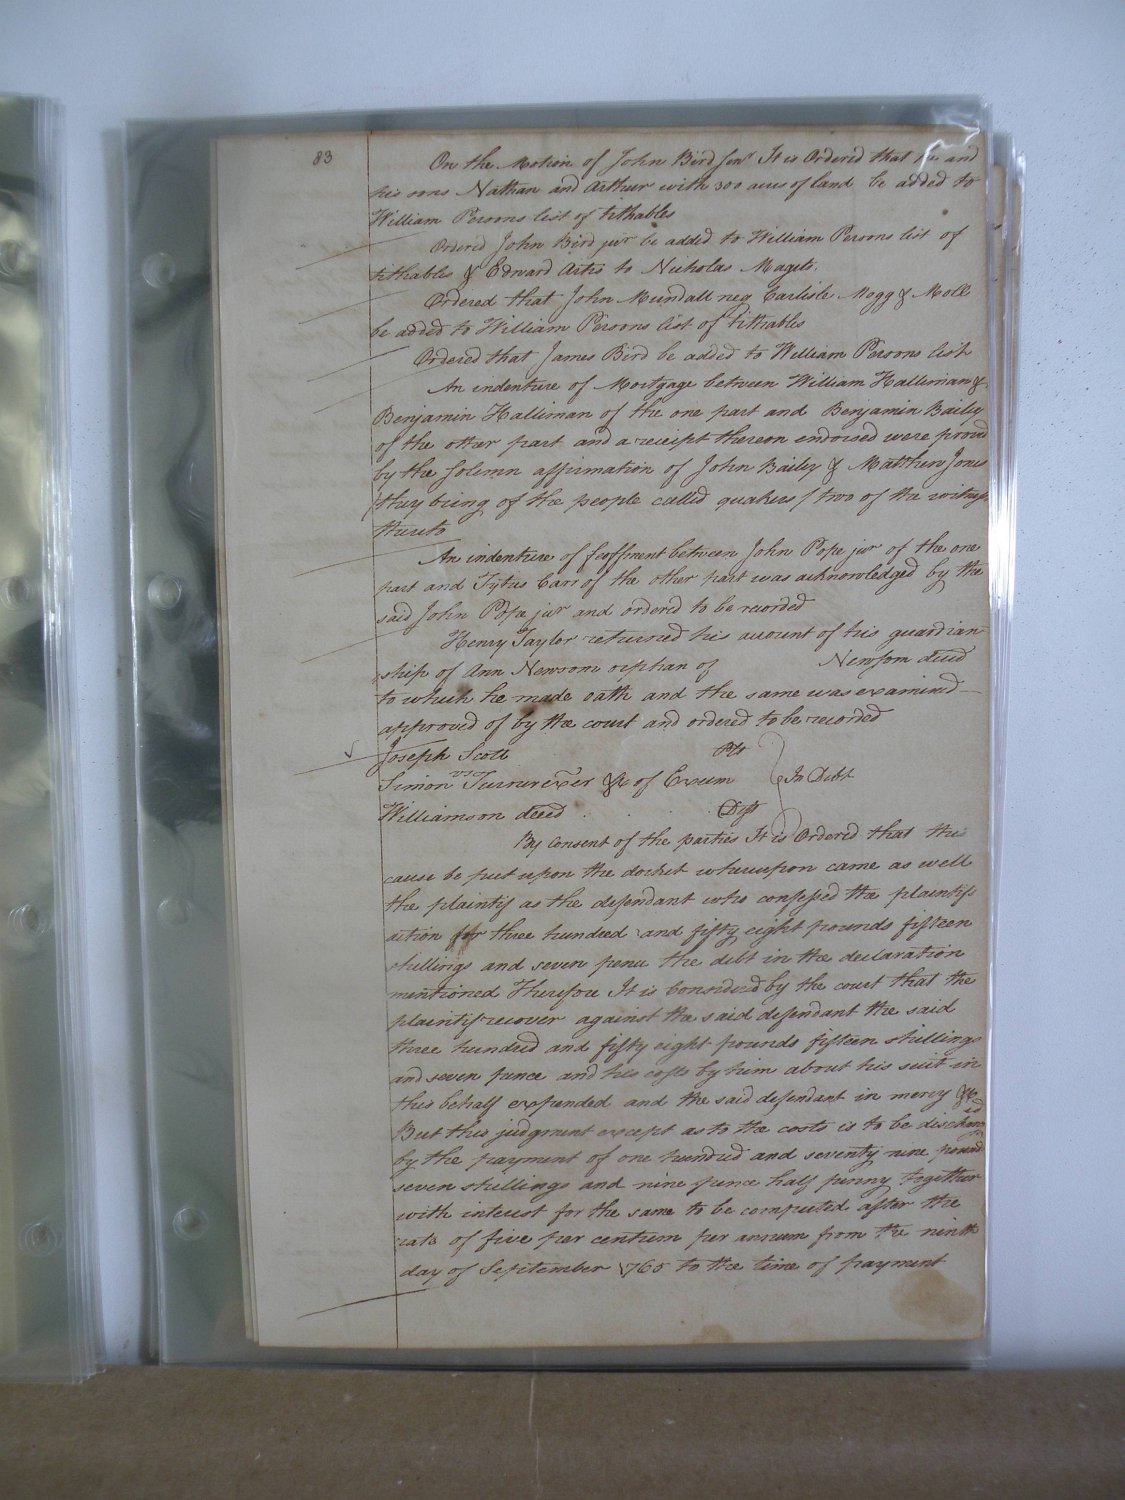 83
On the Motion of John Bird senr It is Ordered that he and
his sons Nathan and Arthur with 300 acres of land be added to
William Persons list of tithables
Ordered John Bird jur be added to William Persons list of
tithables & Edward Artis to Nicholas Magets.
Ordered that John Mundall neg Carlisle Mogg & Moll
be added to William Persons list of tithables
Ordered that James Bird be added to William Persons list
An indenture of Mortgage between William Halliman &
Benjamin Halliman of the one part and Benjamin Bailey
of the other part and a receipt thereon endorsed were proved
by the solemn affirmation of John Bailey & Matthew Jones
/they being of the people called quakers/ two of the witnesses
thereto
An indenture of feoffment between John Pope jur of the one
part and Tytus Carr of the other part was acknowledged by the
said John Pope jur and ordered to be recorded
Henry Taylor returned his account of his guardian
ship of Ann Newsom orphan of Newsom deced
to which he made oath and the same was examined
approved of by the court and ordered to be recorded
Joseph Scott Plt
vs
Simon Turner exer &c of Exum } In Debt
Williamson deced Deft
By Consent of the parties It is Ordered that this
cause be put upon the docket whereupon came as well
the plaintif as the defendant who confessed the plaintifs
action for three hundred and fifty eight pounds fifteen
shillings and seven pence the debt in the declaration
mentioned Therefore It is Considered by the court that the
plaintif recover against the said defendant the said
three hundred and fifty eight pounds fifteen shillings
and seven pence and his costs by him about his suit in
this behalf expended and the said defendant in mercy &c
But this judgment except as to the costs is to be discharged
by the payment of one hundred and seventy nine pounds
seven shillings and nine pence half penny together
with interest for the same to be computed after the
rate of five per centum per annum from the ninth
day of September 1765 to the time of payment